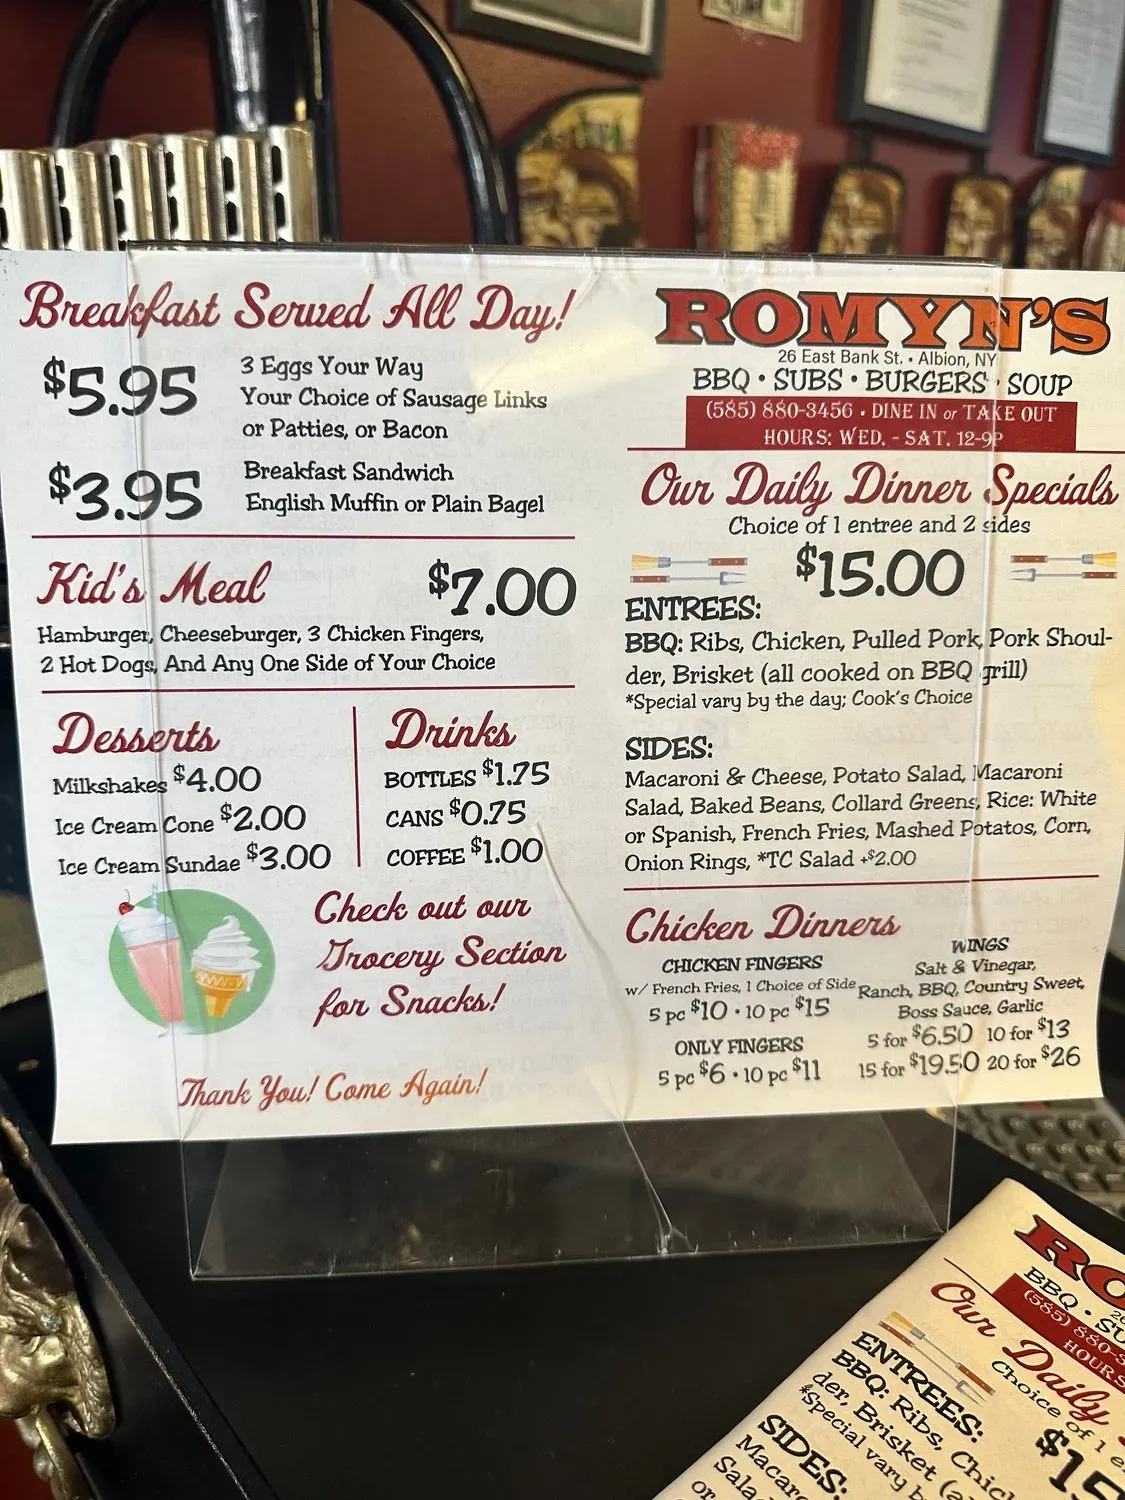 Breakfast Served All Day!
$5.95
3 Eggs Your Way
Your Choice of Sausage Links
or Patties, or Bacon
$3.95
Breakfast Sandwich
English Muffin or Plain Bagel
Kid's Meal $7.00
Hamburger, Cheeseburger, 3 Chicken Fingers,
2 Hot Dogs, And Any One Side of Your Choice
Desserts
Milkshakes $4.00
Ice Cream Cone $2.00
Ice Cream Sundae $3.00
Drinks
BOTTLES $1.75
CANS $0.75
COFFEE $1.00
Check out our
Grocery Section
for Snacks!
Thank You! Come Again!
ROMYN'S
26 East Bank St. • Albion, NY
BBQ • SUBS • BURGERS • SOUP
(585) 880-3456 • DINE IN or TAKE OUT
HOURS: WED. - SAT. 12-9P
Our Daily Dinner Specials
Choice of 1 entree and 2 sides
$15.00
ENTREES:
BBQ: Ribs, Chicken, Pulled Pork, Pork Shoul-
der, Brisket (all cooked on BBQ grill)
*Special vary by the day; Cook's Choice
SIDES:
Macaroni & Cheese, Potato Salad, Macaroni
Salad, Baked Beans, Collard Greens, Rice: White
or Spanish, French Fries, Mashed Potatos, Corn,
Onion Rings, *TC Salad +$2.00
Chicken Dinners
CHICKEN FINGERS
w/ French Fries, 1 Choice of Side
5 pc $10 • 10 pc $15
ONLY FINGERS
5 pc $6 • 10 pc $11
WINGS
Salt & Vinegar,
Ranch, BBQ, Country Sweet,
Boss Sauce, Garlic
5 for $6.50 10 for $13
15 for $19.50 20 for $26
RO
BBQ • SU
(585) 880-3
HOURS
Our Daily
Choice of 1 e
$15
ENTREES:
BBQ: Ribs, Chic
der, Brisket (a
*Special vary b
SIDES:
Macaro
Sala
or